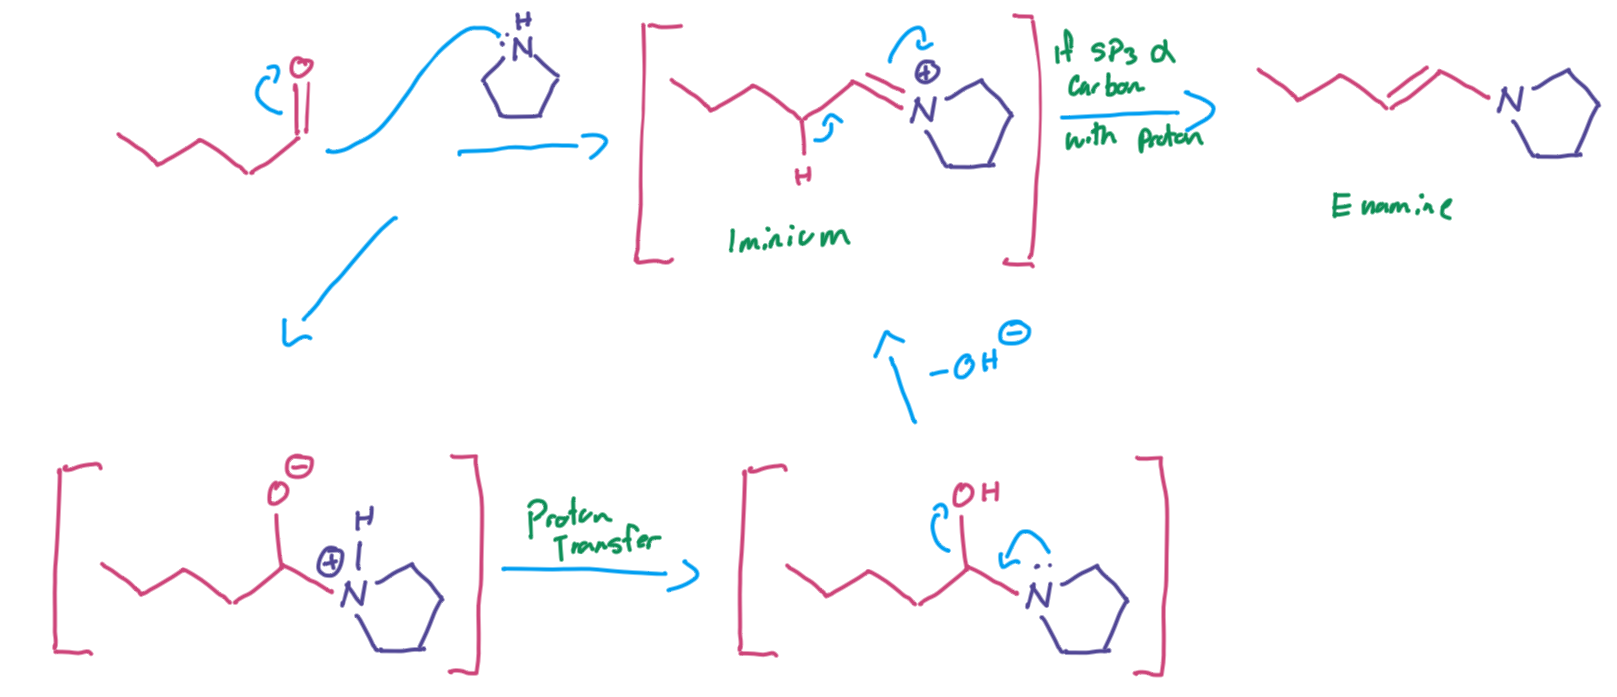 H
:N
O
⊕
N
H
Iminium
If SP3 α
Carbon
with Proton
N
Enamine
-OH⊖
O⊖
H
⊕
N
Proton
Transfer
OH
N